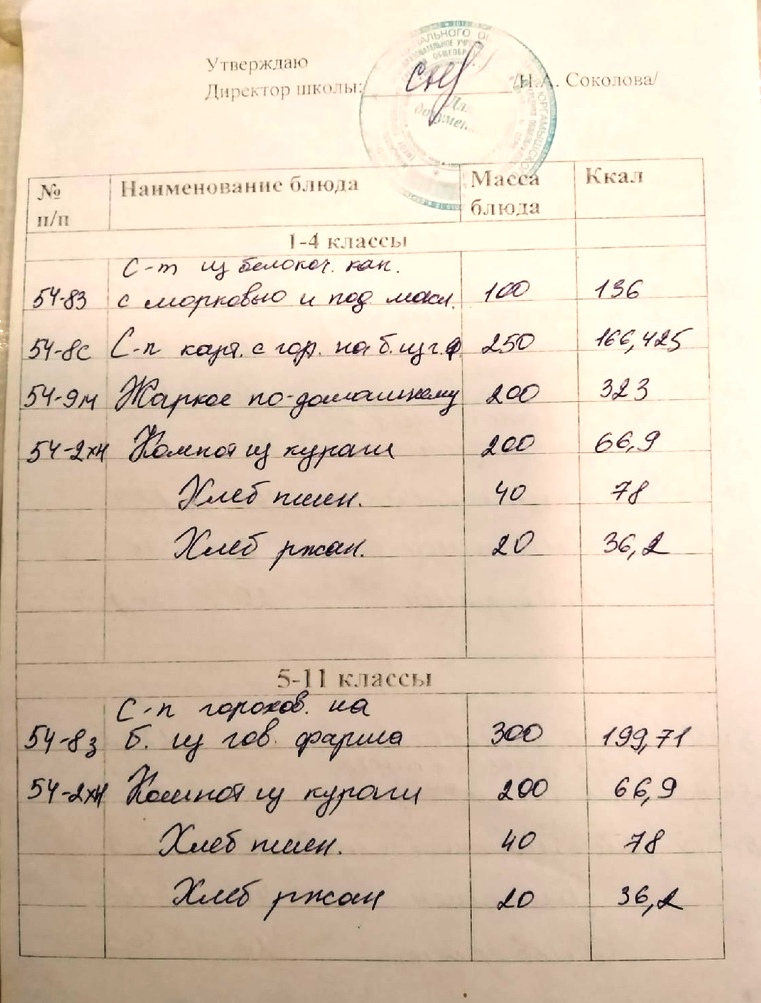 Утверждаю
Директор школы: /Н.А. Соколова/
№ п/п Наименование блюда Масса блюда Ккал
1-4 классы
С-т из белокоч. кап.
54-8з с морковью и под масл. 100 136
54-8с С-п карт. с гор. на б. из г.ф 250 166,425
54-9м Жаркое по-домашнему 200 323
54-2хн Компот из кураги 200 66,9
Хлеб пшен. 40 78
Хлеб ржан. 20 36,2
5-11 классы
С-п горохов. на
54-8з б. из гов. фарша 300 199,71
54-2хн Компот из кураги 200 66,9
Хлеб пшен. 40 78
Хлеб ржан 20 36,2